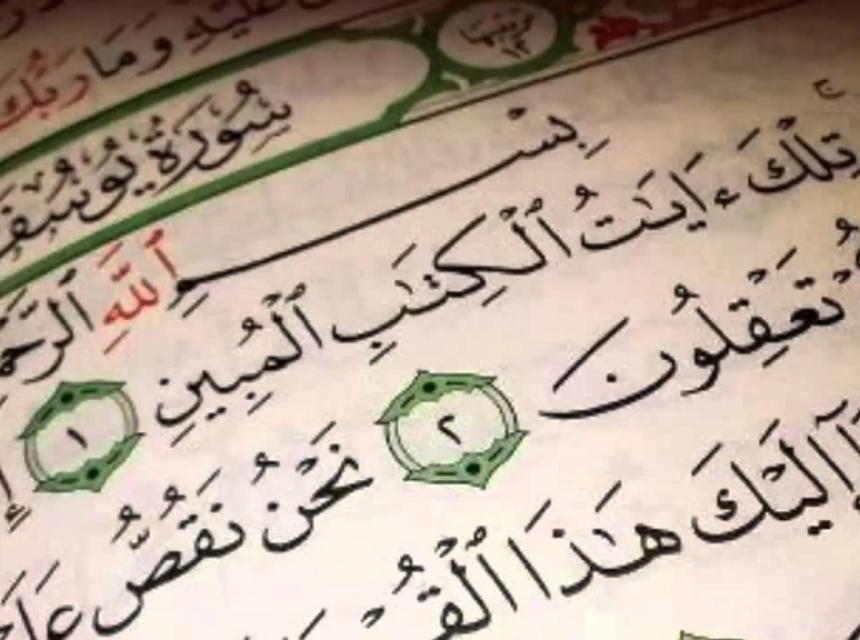 عَلَيْهِ وَمَا رَبُّكَ
سُورَةُ يُوسُفَ
بِسْمِ ٱللَّهِ ٱلرَّحْمَ
تِلْكَ ءَايَٰتُ ٱلْكِتَٰبِ ٱلْمُبِينِ ١
تَعْقِلُونَ ٢ نَحْنُ نَقُصُّ
إِلَيْكَ هَٰذَا ٱلْقُرْ